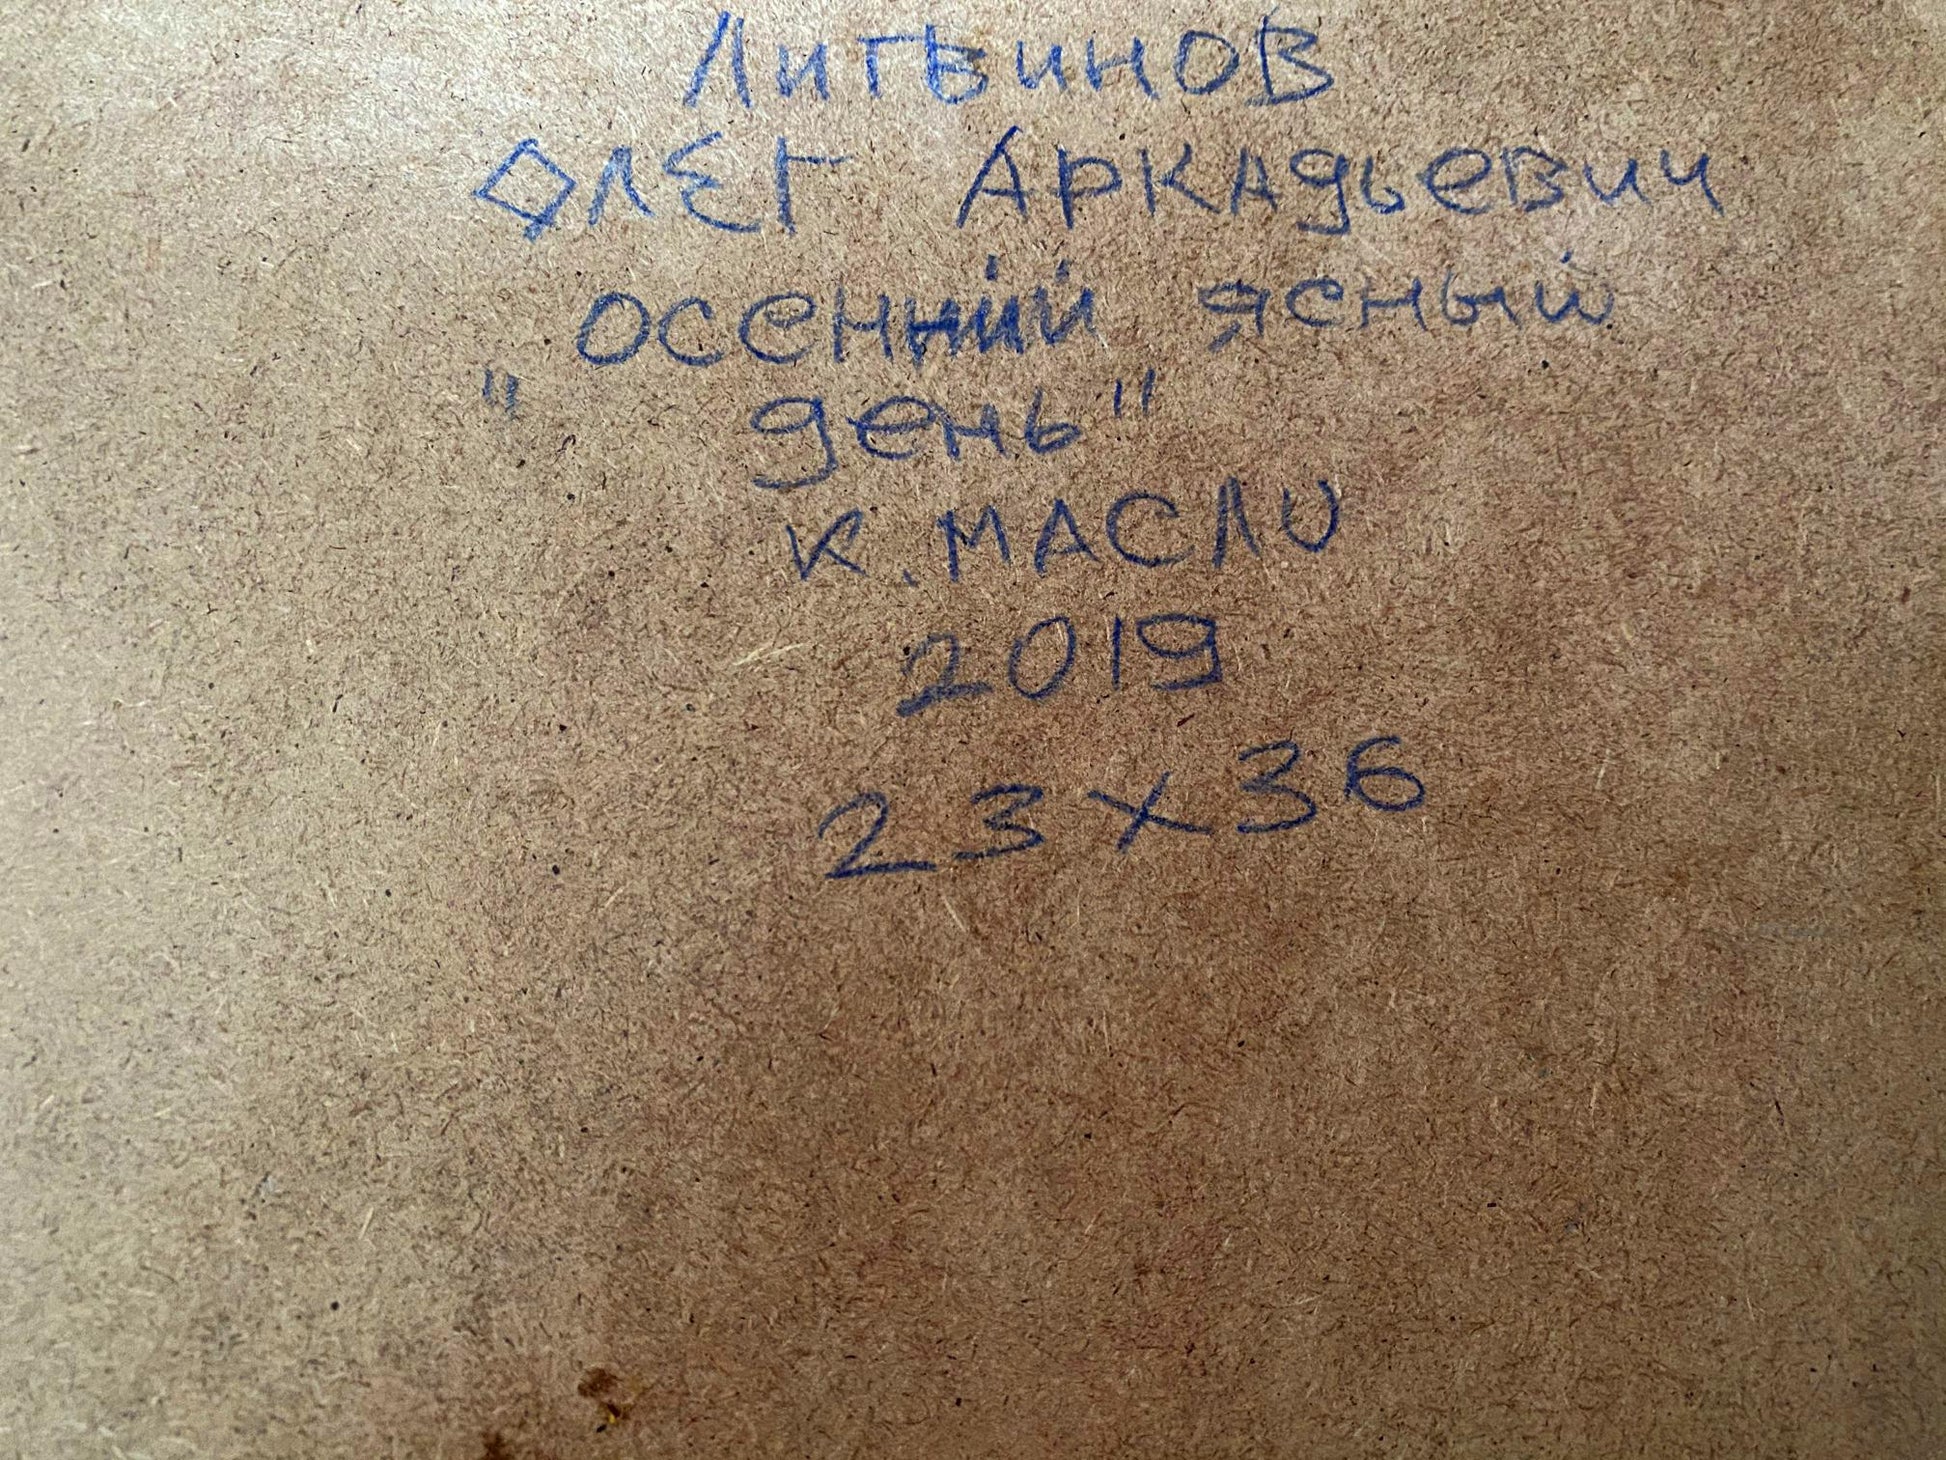 Литвинов
Олег Аркадьевич
осенний ясный
" день"
к. масло
2019
23 х 36